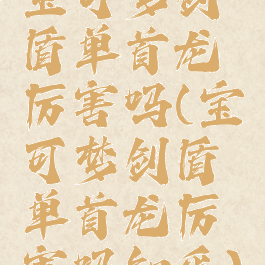 宝可梦剑
盾单首龙
厉害吗(宝
可梦剑盾
单首龙厉
害吗知乎)